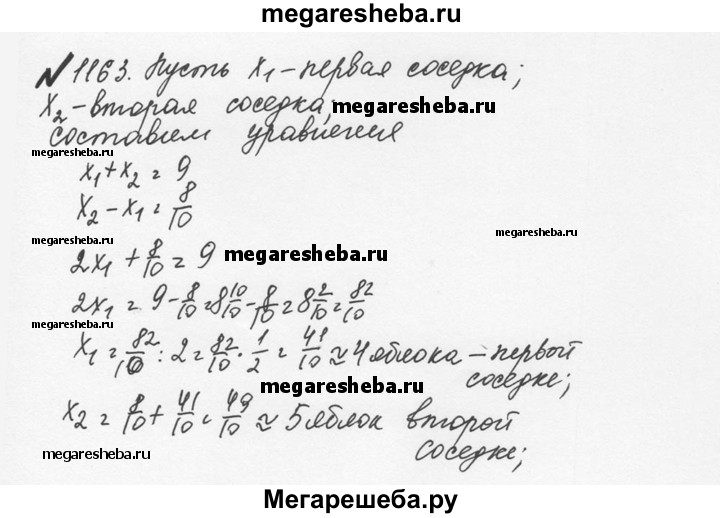 megaresheba.ru
№1163. Пусть x₁ - первая соседка;
x₂ - вторая соседка, megaresheba.ru
составим уравнения
megaresheba.ru
x₁ + x₂ = 9
x₂ - x₁ = 8/10
megaresheba.ru
megaresheba.ru
2x₁ + 8/10 = 9 megaresheba.ru
2x₁ = 9 - 8/10 = 8 10/10 - 8/10 = 8 2/10 = 82/10
megaresheba.ru
x₁ = 82/10 : 2 = 82/10 · 1/2 = 41/10 ≈ 4 яблока - первой
соседке;
megaresheba.ru
x₂ = 8/10 + 41/10 = 49/10 ≈ 5 яблок второй
соседке;
megaresheba.ru
Мегарешеба.ру